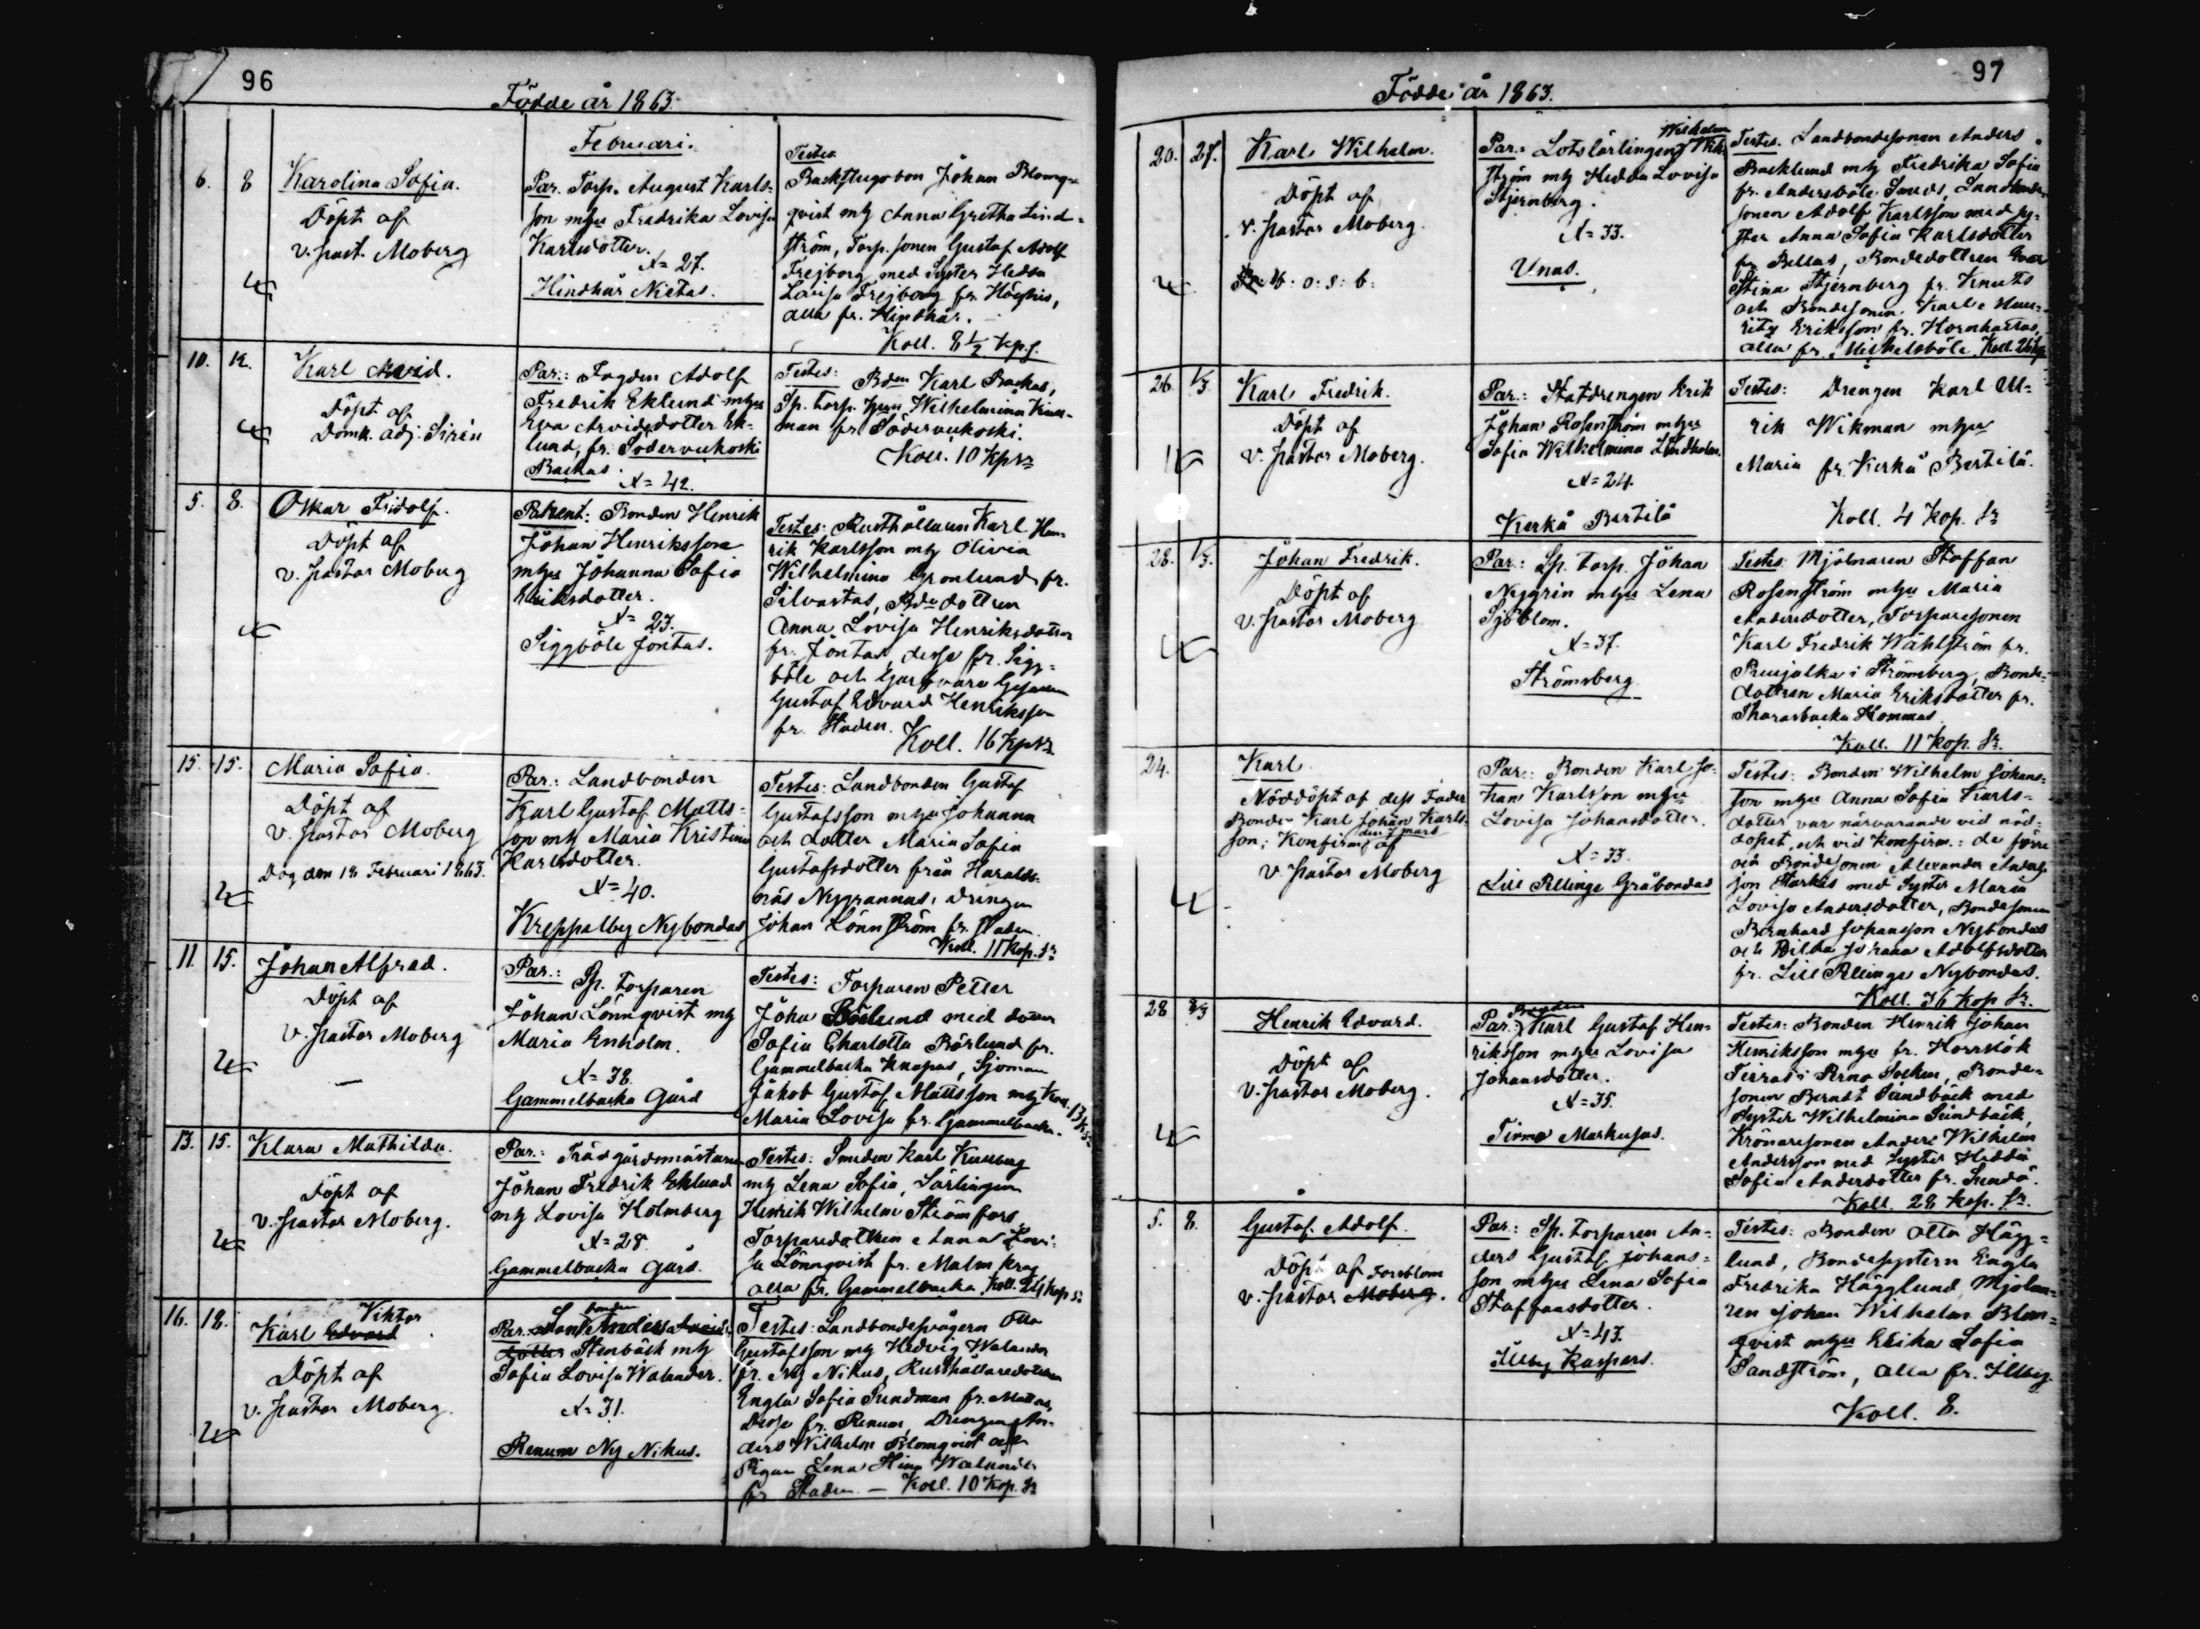 96
Födde år 1863.
Februari.
6. 8 Karolina Sofia.
Döpt af
v. past. Moberg
Par. Torp. August Karls-
son mhu Fredrika Lovisa
Karlsdotter.
N= 27.
Hindhår Nietas.
Testes
Backstugobon Johan Blomq-
qvist mh Anna Gretha Lind-
ström, Torp. sonen Gustaf Adolf
Frejborg med Syster Hedda
Lovisa Frejborg fr.
alla fr. Hindhår.
Koll. 8 1/2 kp. s.
10. 12. Karl Arvid.
Döpt af
Domk. adj. Sirén
Par.: Fogden Adolf
Fredrik Eklund mhu
Eva Arvidsdotter Ek-
lund, fr. Södervekoski
Backas.
N= 42.
Testes: Bden Karl Backas,
Sp. torp. Wilhelmina
man fr. Södervekoski.
Koll. 10 kp sr
5. 8. Oskar Fridolf.
Döpt af
v. pastor Moberg
Parent: Bonden Henrik
Johan Henriksson
mhu Johanna Sofia
Eriksdotter.
N= 23.
Siggböle Jontas.
Testes: Rusthållaren Karl Hen-
rik Karlsson mh Olivia
Wilhelmina Gronlund fr.
Silvastas, Bde dottren
Anna Lovisa Henriksdotter
fr. Jontas, desse fr. Sigg-
böle och Garfvare Gesällen
Gustaf Edvard Henriksson
fr. Staden.
Koll. 16 kp sr.
15. 15. Maria Sofia.
Döpt af
v. pastor Moberg
Dog den 18 Februari 1863.
Par.: Landbonden
Karl Gustaf Matts-
son mh Maria Kristina
Karlsdotter.
N= 40.
Kreppelby Nybondas
Testes: Landbonden Gustaf
Gustafsson mhu Johanna
och dotter Maria Sofia
Gustafsdotter från Haralds-
näs Nygrannas, drengen
Johan Lönnström fr. Staden.
Koll. 11 kop. sr
11. 15. Johan Alfred.
Döpt af
v. pastor Moberg
Par.: Sp. torparen
Johan Lönnqvist mh
Maria Enholm.
N= 38.
Gammelbacka Gård
Testes: Torparen Petter
Joha Böslund med dotter
Sofia Charlotta Böslund fr.
Gammelbacka Knapas, Sjöman
Jakob Gustaf Mattsson mh
Maria Lovisa fr. Gammelbacka.
Koll. 13 k sr
13. 15. Klara Mathilda.
Döpt af
v. pastor Moberg.
Par.: Trädgårdsmästaren
Johan Fredrik Eklund
mh Lovisa Holmberg
N= 28.
Gammelbacka Gård.
Testes: Smeden Karl Kullberg
mh Lena Sofia, Lärlingen
Henrik Wilhelm Strömfors
Torparedottren Anna Lovi-
sa Lönnqvist fr. Malm krog
alla fr. Gammelbacka. Koll. 24 kop sr
16. 18. Karl Edvard Viktor
Döpt af
v. pastor Moberg.
Par. Landbonden Anders
dotter Stenbäck mh
Sofia Lovisa Walander.
N= 31.
Renum Ny Nikus.
Testes: Landbondesvågern Otto
Gustafsson mh Hedvig Walander
fr. Ny Nikus, Rusthållaredottren
Engla Sofia Sundman fr. Mattas,
Desse fr. Renum, Drengen An-
ders Wilhelm Blomqvist och
Pigan Lena Stina Walander
fr. Staden. — Koll. 10 kop. sr
97
Födde år 1863.
20. 27. Karl Wilhelm.
Döpt af
v. pastor Moberg.
o: s: b:
Par.: Lotslärlingen Wilhelm Wik-
ström mh Hedda Lovisa
Stjernberg.
N= 33.
Unas.
Testes. Landbondesonen Anders
Backlund mh Fredrika Sofia
fr. Andersböle Smeds, Landbonde-
sonen Adolf Karlsson med sy-
ster Anna Sofia Karlsdotter
fr. Pellas, Bondedottren Eva
Stina Stjernberg fr. Knuts
och Bondesonen Karl Mau-
ritz Eriksson fr. Hornhattas,
alla fr. Mickelsböle.
26. 1/3 Karl Fredrik.
Döpt af
v. pastor Moberg.
Par.: Statdrengen Erik
Johan Rosenström mhu
Sofia Wilhelmina Lindholm.
N= 24.
Kerkå Bertilä
Testes: Drengen Karl Ul-
rik Wikman mhu
Maria fr. Kerkå Bertilä.
Koll. 4 kop. sr
28. 1/3. Johan Fredrik.
Döpt af
v. pastor Moberg
Par.: Sp. torp. Johan
Nygrin mhu Lena
Sjöblom.
N= 37.
Strömsberg
Testes: Mjölnaren Staffan
Rosenström mhu Maria
Andersdotter, Torparesonen
Karl Fredrik Wåhlström fr.
i Strömsberg, Bonde-
dottren Maria Eriksdotter fr.
Tharasbacka Hommas.
Koll. 11 kop. sr.
24. Karl
Nöddöpt af dess Fader
Bonde Karl Johan Karls-
son; Konfirm: den 7 mars af
v. pastor Moberg
Par.: Bonden Karl Jo-
han Karlsson mhu
Lovisa Johansdotter.
N= 33.
Lill Pellinge Gråbondas
Testes: Bonden Wilhelm Johans-
son mhu Anna Sofia Karls-
dotter var närvarande vid nöd-
dopet, och vid Konfirm.: de förre
och Bondesonen Alexander Anders-
son Starkas med Syster Maria
Lovisa Andersdotter, Bondesonen
Bernhard Johansson Nybondas
och Hilda Johana Adolfsdotter
fr. Lill Pellinge Nybondas.
Koll. 76 kop sr.
28 8/3 Henrik Edvard.
Döpt af
v. pastor Moberg.
Par.: Bonden Karl Gustaf Hen-
riksson mhu Lovisa
Johansdotter.
N= 35.
Tirmo Markusas.
Testes: Bonden Henrik Johan
Henriksson mhu fr. Horrstök
Tirras i Perno Socken, Bonde-
sonen Berndt Sundbäck med
Syster Wilhelmina Sundbäck,
Krönaresonen Anders Wilhelm
Andersson med Syster Hedda
Sofia Andersdotter fr. Sundö.
Koll. 28 kop. sr.
5. 8. Gustaf Adolf.
Döpt af Forsblom
v. pastor Moberg.
Par.: Sp. torparen An-
ders Gustaf Johans-
son mhu Lena Sofia
Staffansdotter.
N= 43.
Illby Kaspers.
Testes: Bonden Otto Hägg-
lund, Bondesystern Engla
Fredrika Hägglund, Mjölna-
ren Johan Wilhelm Blom-
qvist mhu Erika Sofia
Sandström, alla fr. Illby
Koll. 8.